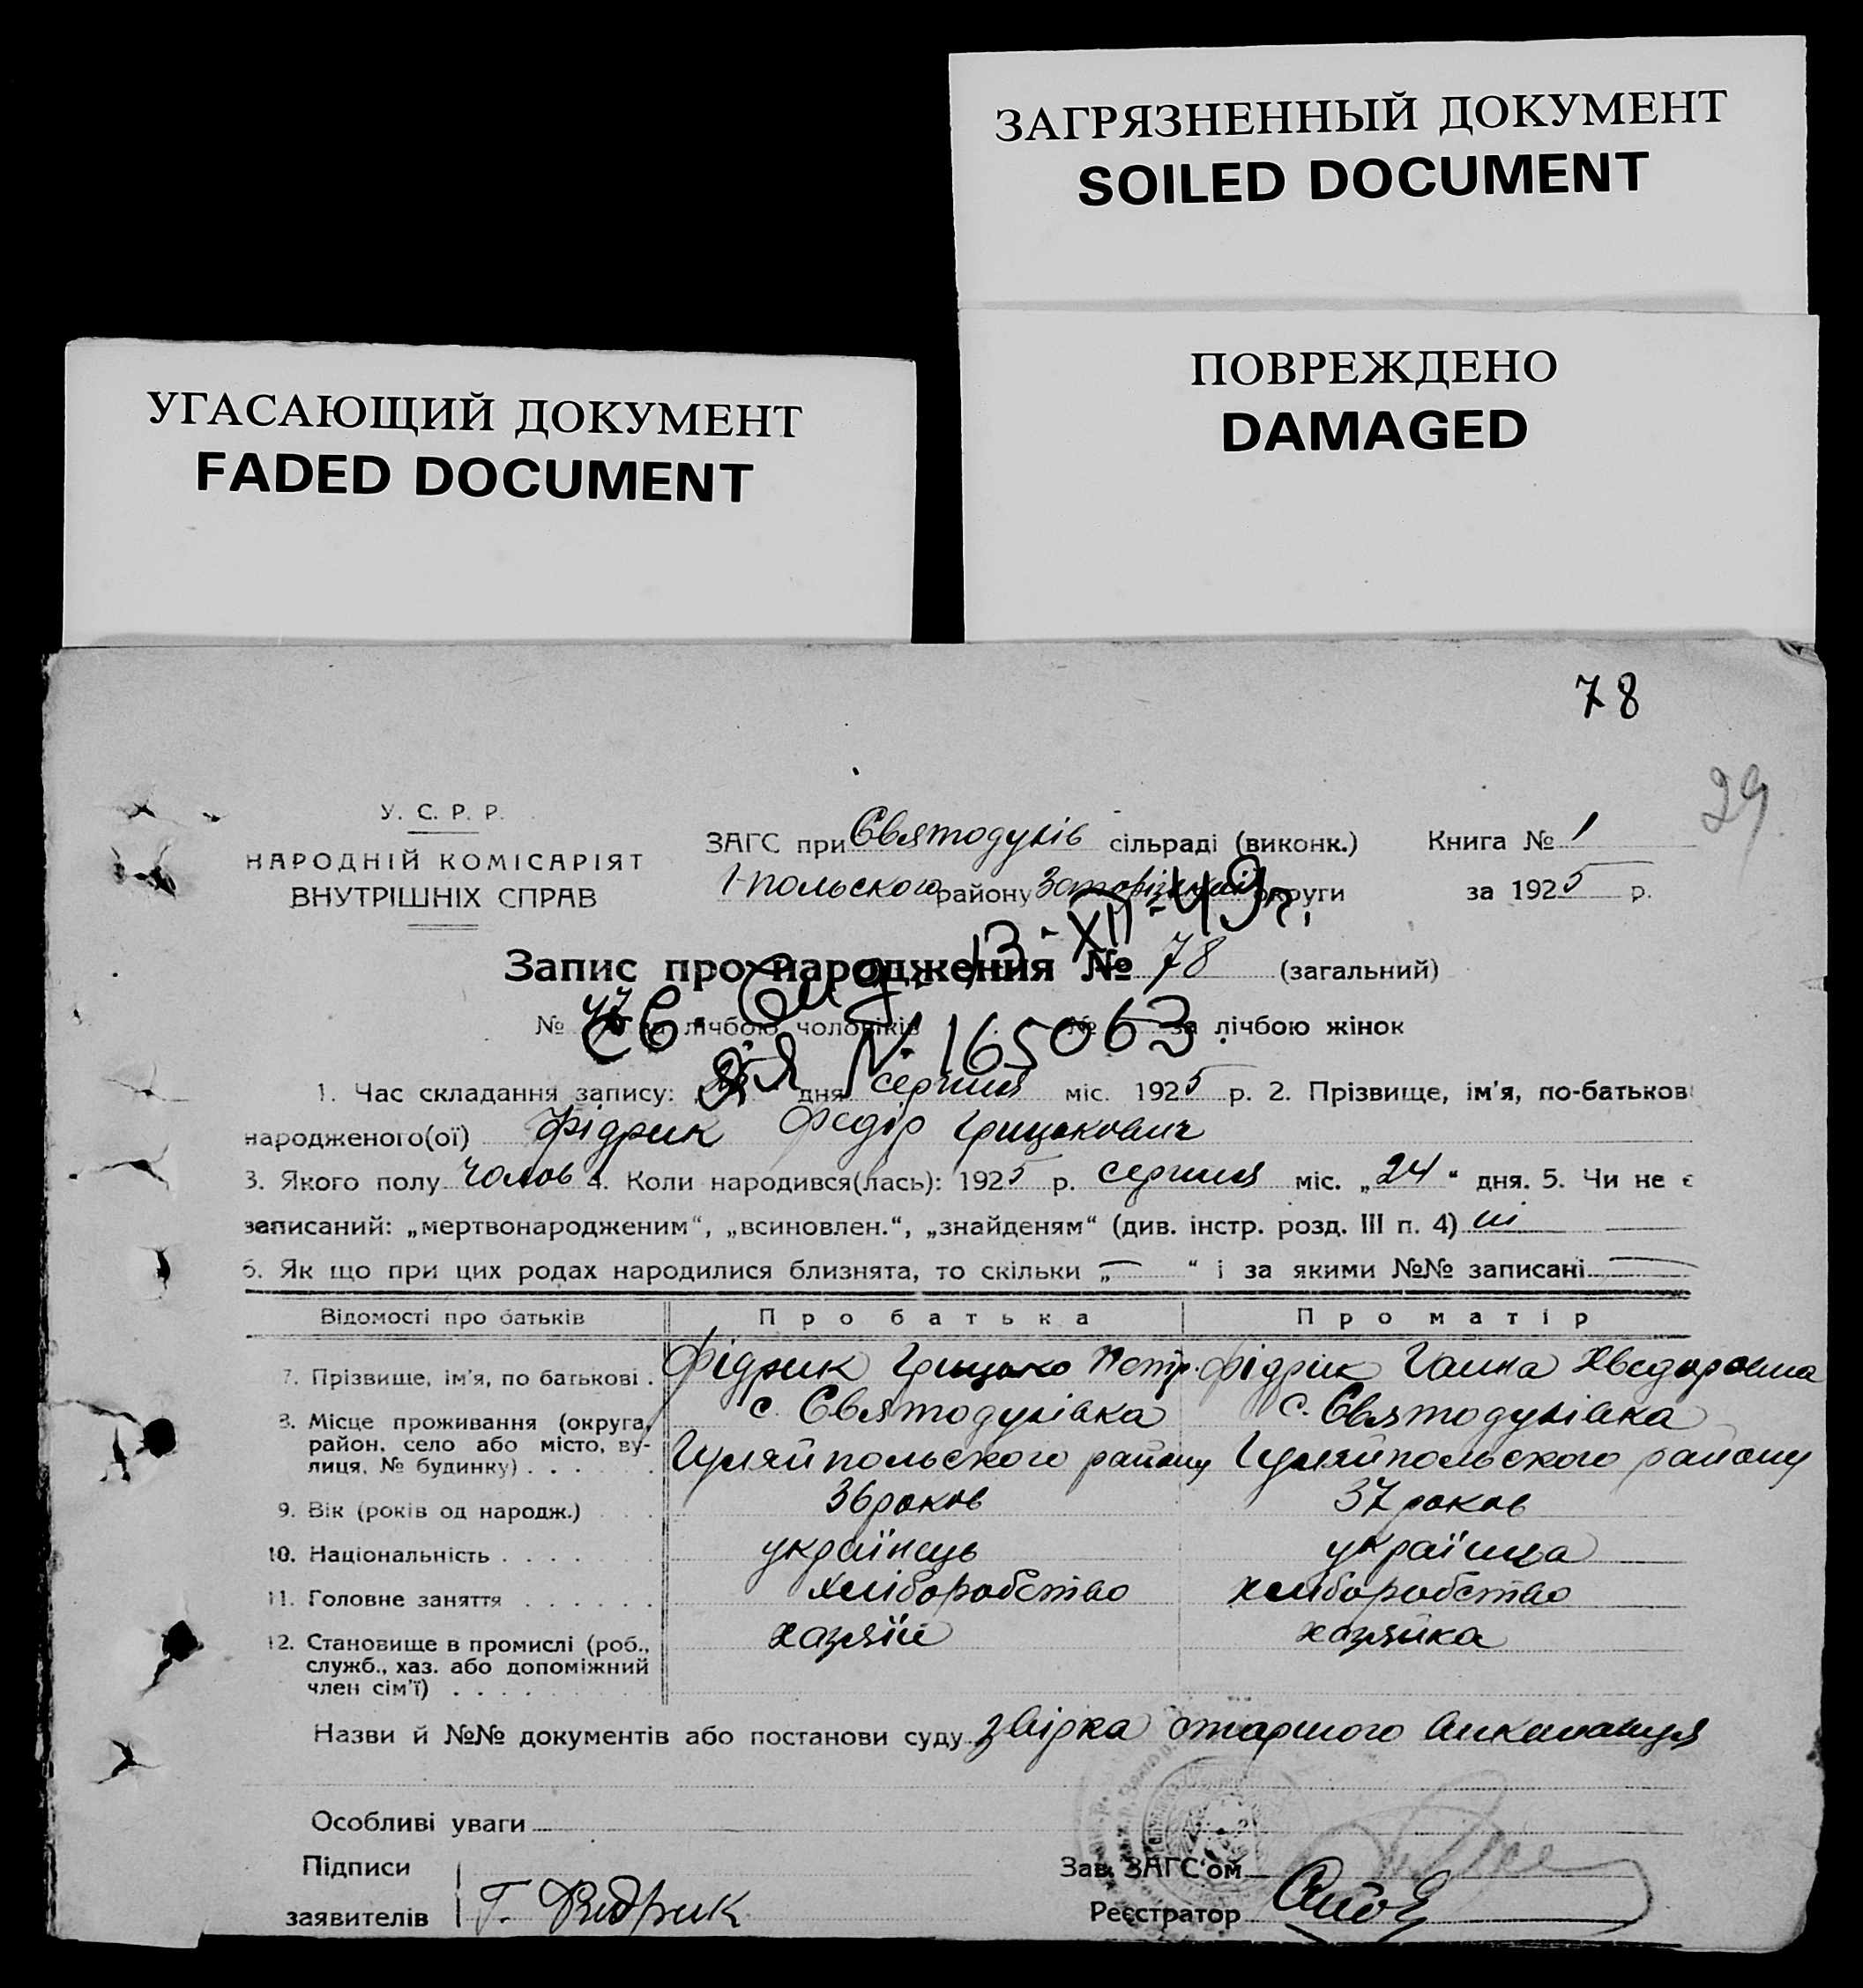 ЗАГРЯЗНЕННЫЙ ДОКУМЕНТ
SOILED DOCUMENT
ПОВРЕЖДЕНО
DAMAGED
УГАСАЮЩИЙ ДОКУМЕНТ
FADED DOCUMENT
78
29
У. С. Р. Р.
НАРОДНІЙ КОМІСАРІЯТ
ВНУТРІШНІХ СПРАВ
ЗАГС при Святодухів сільраді (виконк.) Книга № 1
Г-польского району округи за 1925 р.
13-XII-49г.
Запис про народження № 78 (загальний)
№ за лічбою чоловіків № за лічбою жінок
№ 165063
1. Час складання запису: дня серпня міс. 1925 р. 2. Прізвище, ім'я, по-батьков
народженого(ої) Фідрик Федір Грицькович
3. Якого полу чолов 4. Коли народився(лась): 1925 р. серпня міс. „24“ дня. 5. Чи не є
записаний: „мертвонародженим“, „всиновлен.“, „знайденям“ (див. інстр. розд. III п. 4) ні
6. Як що при цих родах народилися близнята, то скільки „—“ і за якими №№ записані —
Відомості про батьків Про батька Про матір
7. Прізвище, ім'я, по батькові . Фідрик Грицько Петр. Фідрик Ганна Хведоровна
8. Місце проживання (округа, район, село або місто, ву-лиця, № будинку) . . . . с. Святодухівка Гуляйпольского району с. Святодухівка Гуляйпольского району
9. Вік (років од народж.) . . . 36 роков 37 роков
10. Національність . . . . . . . українець українка
11. Головне заняття . . . . . . хліборобство хліборобство
12. Становище в промислі (роб., служб., хаз. або допоміжний член сім'ї) . . . . . . . . хазяїн хазяйка
Назви й №№ документів або постанови суду звірка старшого виконавця
Особливі уваги
Підписи
заявителів Г. Фидрик
Зав. ЗАГС'ом
Реєстратор